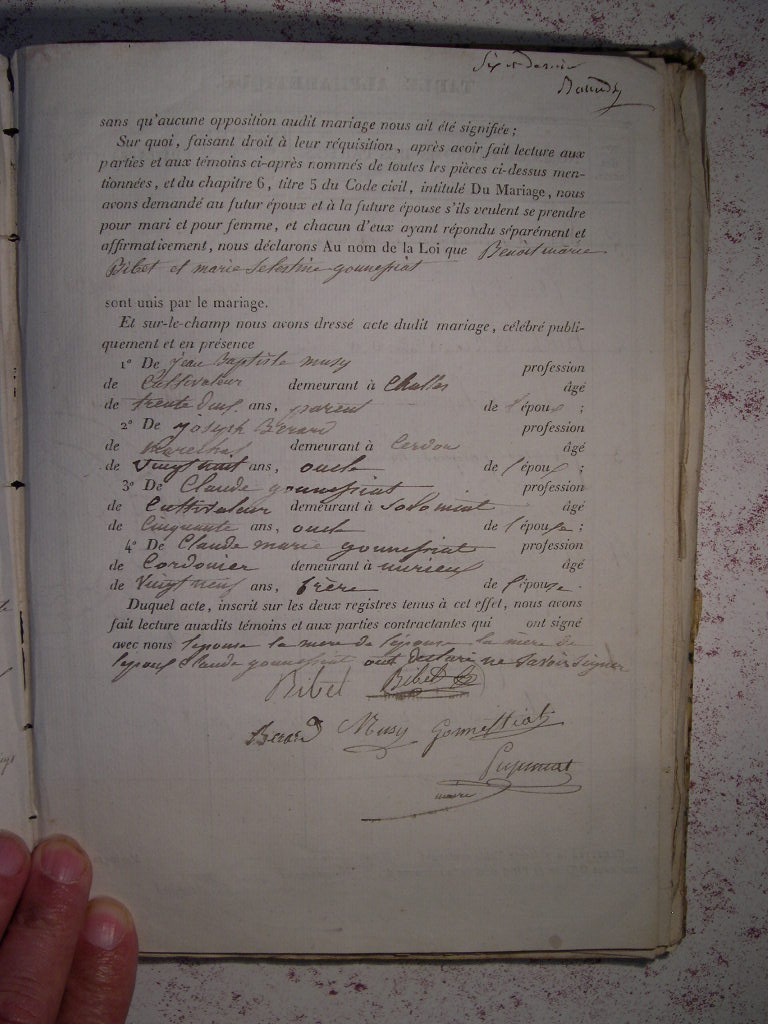 Six et dernier
sans qu'aucune opposition audit mariage nous ait été signifiée ;
Sur quoi, faisant droit à leur réquisition, après avoir fait lecture aux
parties et aux témoins ci-après nommés de toutes les pièces ci-dessus men-
tionnées, et du chapitre 6, titre 5 du Code civil, intitulé Du Mariage, nous
avons demandé au futur époux et à la future épouse s'ils veulent se prendre
pour mari et pour femme, et chacun d'eux ayant répondu séparément et
affirmativement, nous déclarons Au nom de la Loi que Benoit marie
Bibet et marie Selestine gounessiat
sont unis par le mariage.
Et sur-le-champ nous avons dressé acte dudit mariage, célébré publi-
quement et en présence
1° De jean Baptiste musy profession
de Cultivateur demeurant à Challes âgé
de trente deux ans, parent de l'époux ;
2° De Joseph Bérard profession
de marechal demeurant à Cerdon âgé
de vingt huit ans, oncle de l'époux ;
3° De Claude gounessiat profession
de Cultivateur demeurant à Solomiat âgé
de Cinquante ans, oncle de l'épouse ;
4° De Claude marie gounessiat profession
de Cordonier demeurant à mérieux âgé
de vingt neuf ans, frère de l'épouse
Duquel acte, inscrit sur les deux registres tenus à cet effet, nous avons
fait lecture auxdits témoins et aux parties contractantes qui ont signé
avec nous lepouse la mere de lepouse la mere de
lepoux Claude gounessiat ont declaré ne savoir signer
Bibet Bibet
Berard Musy Gonnessiat
maire